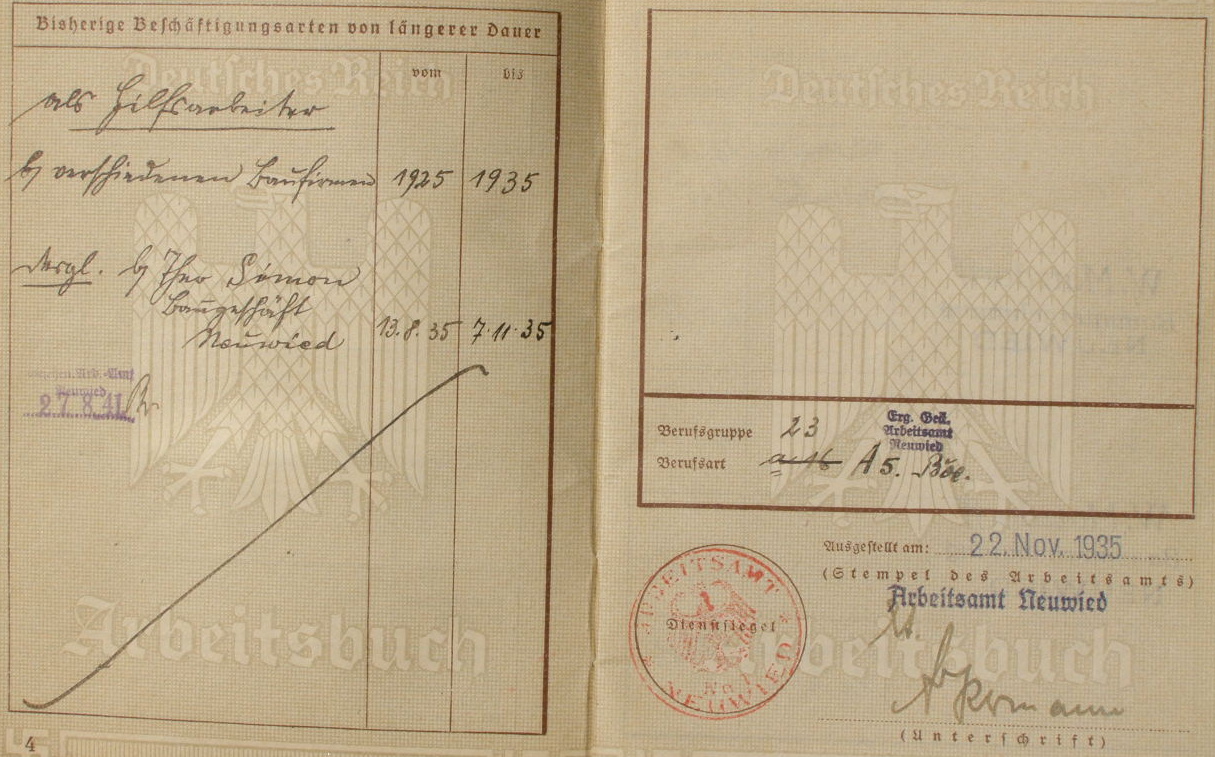 Bisherige Beschäftigungsarten von längerer Dauer
vom bis
Deutsches Reich
als Hilfsarbeiter
b/ verschiedenen Baufirmen 1925 1935
dergl. b/ Theo Simon
Baugeschäft
Neuwied 13.8.35 7.11.35
Neuwied
27.8.41
Arbeitsbuch
4
Deutsches Reich
Berufsgruppe 23
Erg. Geä.
Arbeitsamt
Neuwied
Berufsart a 16 A 5.
Ausgestellt am: 22. Nov. 1935
(Stempel des Arbeitsamts)
Arbeitsamt Neuwied
ARBEITSAMT
Dienstsiegel
NEUWIED
Arbeitsbuch
(Unterschrift)